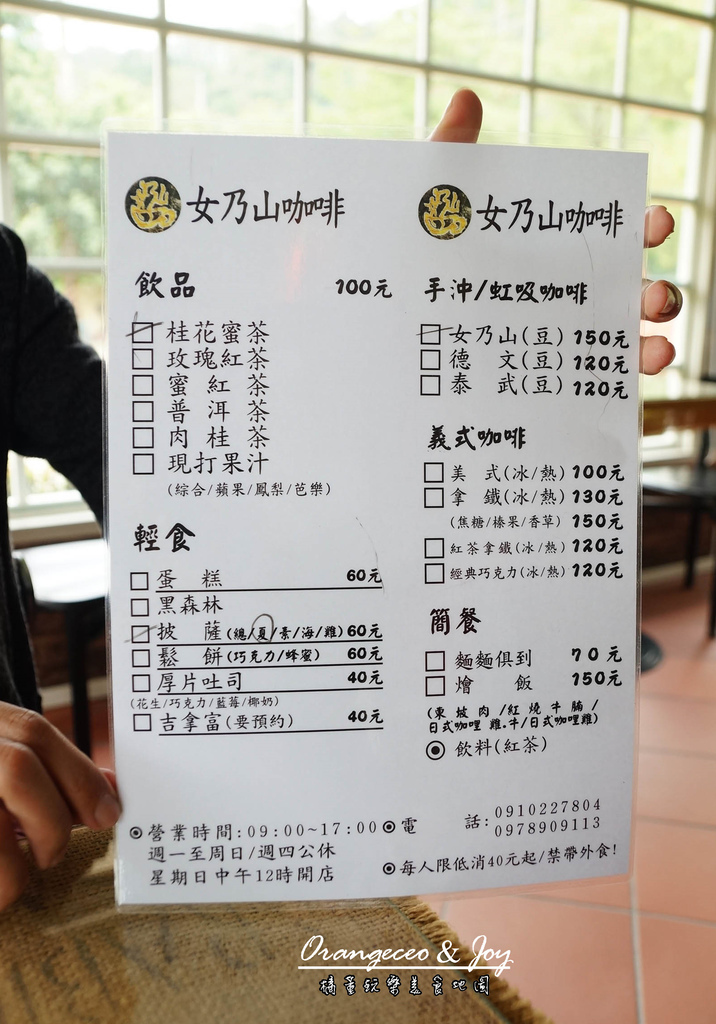 女乃山咖啡
飲品 100元
桂花蜜茶
玫瑰紅茶
蜜紅茶
普洱茶
肉桂茶
現打果汁
(綜合/蘋果/鳳梨/芭樂)
輕食
蛋糕 60元
黑森林
披薩(總/夏/素/海/雞)60元
鬆餅(巧克力/蜂蜜) 60元
厚片吐司 40元
(花生/巧克力/藍莓/椰奶)
吉拿富(要預約) 40元
營業時間:09:00~17:00
週一至周日/週四公休
星期日中午12時開店
女乃山咖啡
手沖/虹吸咖啡
女乃山(豆) 150元
德文(豆) 120元
泰武(豆) 120元
義式咖啡
美式(冰/熱) 100元
拿鐵(冰/熱) 130元
(焦糖/榛果/香草) 150元
紅茶拿鐵(冰/熱) 120元
經典巧克力(冰/熱) 120元
簡餐
麵麵俱到 70元
燴飯 150元
(東坡肉/紅燒牛腩/
日式咖哩雞.牛/日式咖哩雞)
飲料(紅茶)
電話:0910227804
0978909113
每人限低消40元起/禁帶外食!
Orangeceo & Joy
橘董玩樂美食地圖